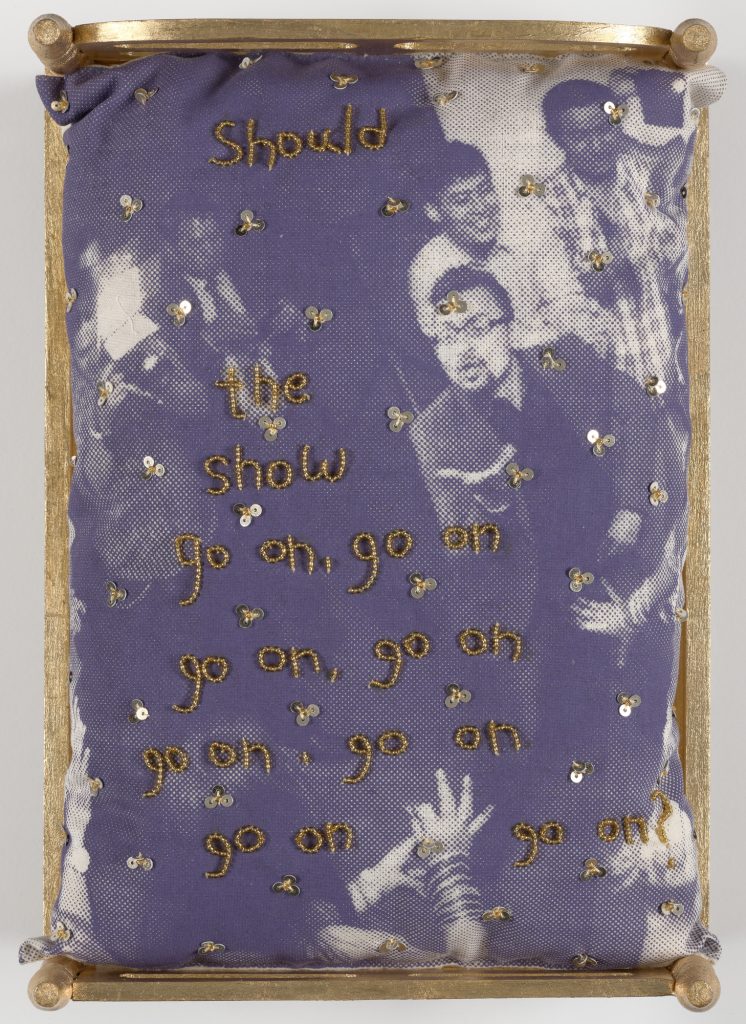 Should
the
show
go on, go on
go on, go on
go on, go on
go on go on?